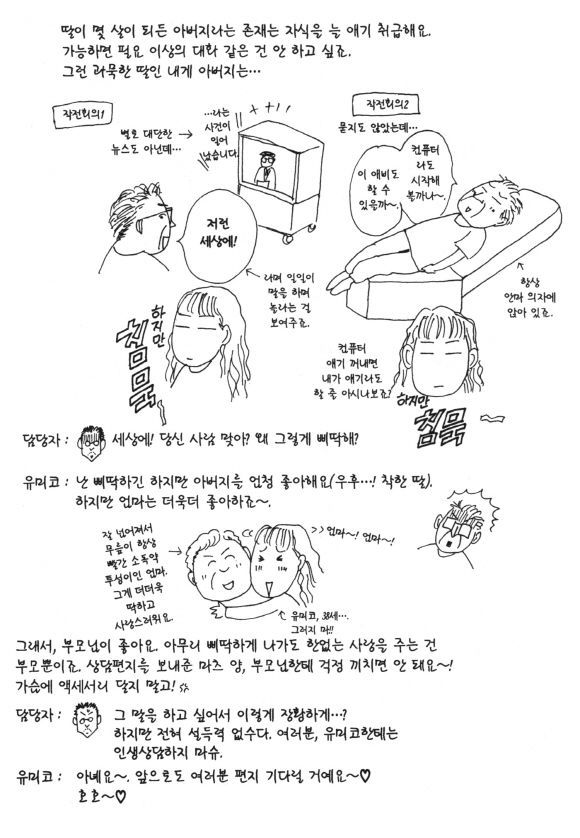 딸이 몇 살이 되든 아버지라는 존재는 자식을 늘 애기 취급해요.
가능하면 필요 이상의 대화 같은 건 안 하고 싶죠.
그런 과묵한 딸인 내게 아버지는…
작전회의1
별로 대단한
뉴스도 아닌데…
…라는
사건이
있어
났습니다.
저런
세상에!
라며 일일이
말을 하며
놀라는 걸
보여주죠.
하지만
침묵
작전회의2
묻지도 않았는데…
컴퓨터
라도
시작해
볼까나~.
이 애비도
할 수
있을까~.
항상
안마 의자에
앉아 있죠.
컴퓨터
얘기 꺼내면
내가 얘기라도
할 줄 아시나보죠?
하지만
침묵
담당자 : 세상에! 당신 사람 맞아? 왜 그렇게 삐딱해?
유미코 : 난 삐딱하긴 하지만 아버지를 엄청 좋아해요(우후…! 착한 딸).
하지만 엄마는 더욱더 좋아하죠~.
잘 넘어져서
무릎이 항상
빨간 소독약
투성이인 엄마.
그게 더더욱
딱하고
사랑스러워요.
엄마~! 엄마~!
유미코, 38세…
그러지 마!!
그래서, 부모님이 좋아요. 아무리 삐딱하게 나가도 한없는 사랑을 주는 건
부모뿐이죠. 상담편지를 보내준 마츠 양, 부모님한테 걱정 끼치면 안 돼요~!
가슴에 액세서리 달지 말고!
담당자 : 그 말을 하고 싶어서 이렇게 장황하게…?
하지만 전혀 설득력 없수다. 여러분, 유미코한테는
인생상담하지 마슈.
유미코 : 아녜요~. 앞으로도 여러분 편지 기다릴 거예요~♡
호호~♡